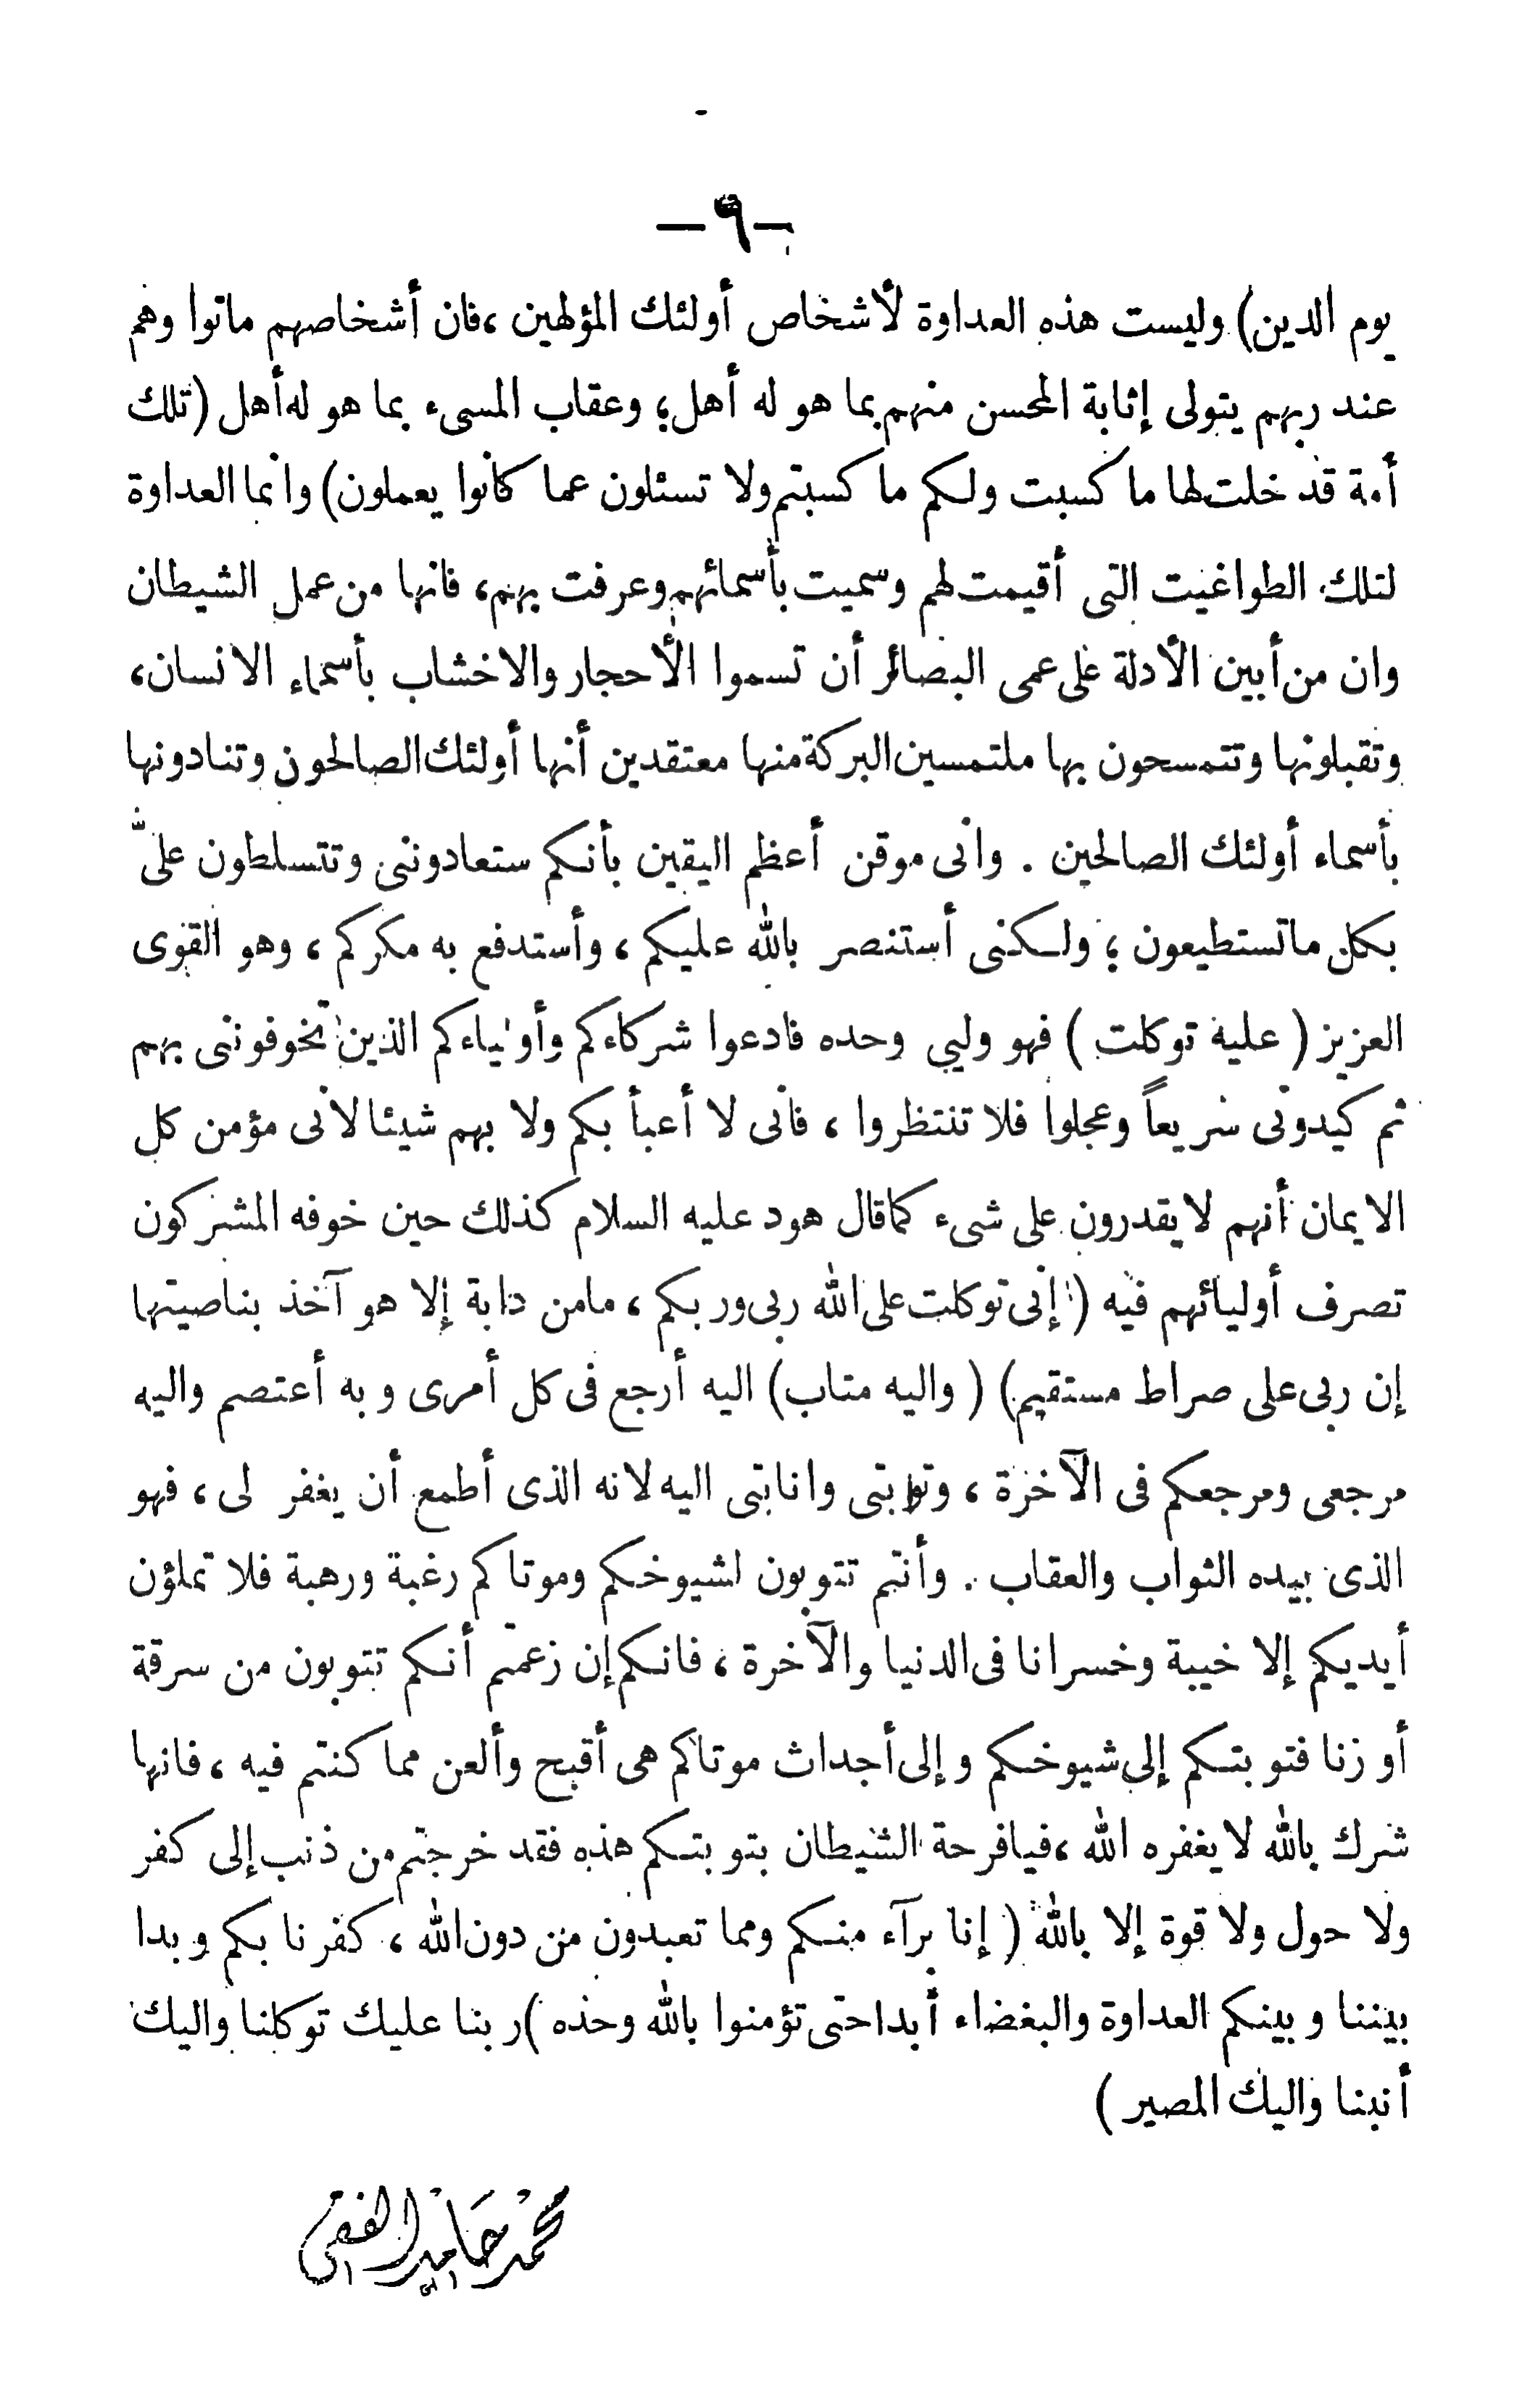 — ٩ —
يوم الدين) وليست هذه العداوة لأشخاص أولئك المؤلهين ، فان أشخاصهم ماتوا وهم
عند ربهم يتولى إثابة المحسن منهم بما هو له أهل ؛ وعقاب المسىء بما هو له أهل (تلك
أمة قد خلت لها ما كسبت ولكم ما كسبتم ولا تسئلون عما كانوا يعملون) وانما العداوة
لتلك الطواغيت التى أقيمت لهم وسميت بأسمائهم وعرفت بهم، فانها من عمل الشيطان
وان من أبين الأدلة على عمى البصائر أن تسموا الأحجار والاخشاب بأسماء الانسان،
وتقبلونها وتتمسحون بها ملتمسين البركة منها معتقدين أنها أولئك الصالحون وتنادونها
بأسماء أولئك الصالحين . وانى موقن أعظم اليقين بأنكم ستعادوننى وتتسلطون علىّ
بكل ماتستطيعون ؛ ولكنى أستنصر بالله عليكم ، وأستدفع به مكركم ، وهو القوى
العزيز ( عليه توكلت ) فهو وليي وحده فادعوا شركاءكم وأولياءكم الذين تخوفوننى بهم
ثم كيدونى سريعاً وعجلوا فلا تنتظروا ، فانى لا أعبأ بكم ولا بهم شيئا لانى مؤمن كل
الايمان أنهم لايقدرون على شىء كماقال هود عليه السلام كذلك حين خوفه المشركون
تصرف أوليائهم فيه ( إنى توكلت على الله ربى وربكم ، مامن دابة إلا هو آخذ بناصيتها
إن ربى على صراط مستقيم) ( واليه متاب) اليه أرجع فى كل أمرى وبه أعتصم واليه
مرجعى ومرجعكم فى الآخرة ، وتوبتى وانابتى اليه لانه الذى أطمع أن يغفر لى ، فهو
الذى بيده الثواب والعقاب . وأنتم تتوبون لشيوخكم وموتاكم رغبة ورهبة فلا تملؤن
أيديكم إلا خيبة وخسرانا فى الدنيا والآخرة ، فانكم إن زعمتم أنكم تتوبون من سرقة
أو زنا فتوبتكم إلى شيوخكم وإلى أجداث موتاكم هى أقبح وألعن مما كنتم فيه ، فانها
شرك بالله لايغفره الله ، فيافرحة الشيطان بتوبتكم هذه فقد خرجتم من ذنب إلى كفر
ولا حول ولا قوة إلا بالله ( إنا برآء منكم ومما تعبدون من دون الله ، كفرنا بكم وبدا
بيننا وبينكم العداوة والبغضاء أبدا حتى تؤمنوا بالله وحده )ربنا عليك توكلنا واليك
أنبنا واليك المصير )
محمد حامد الفقى